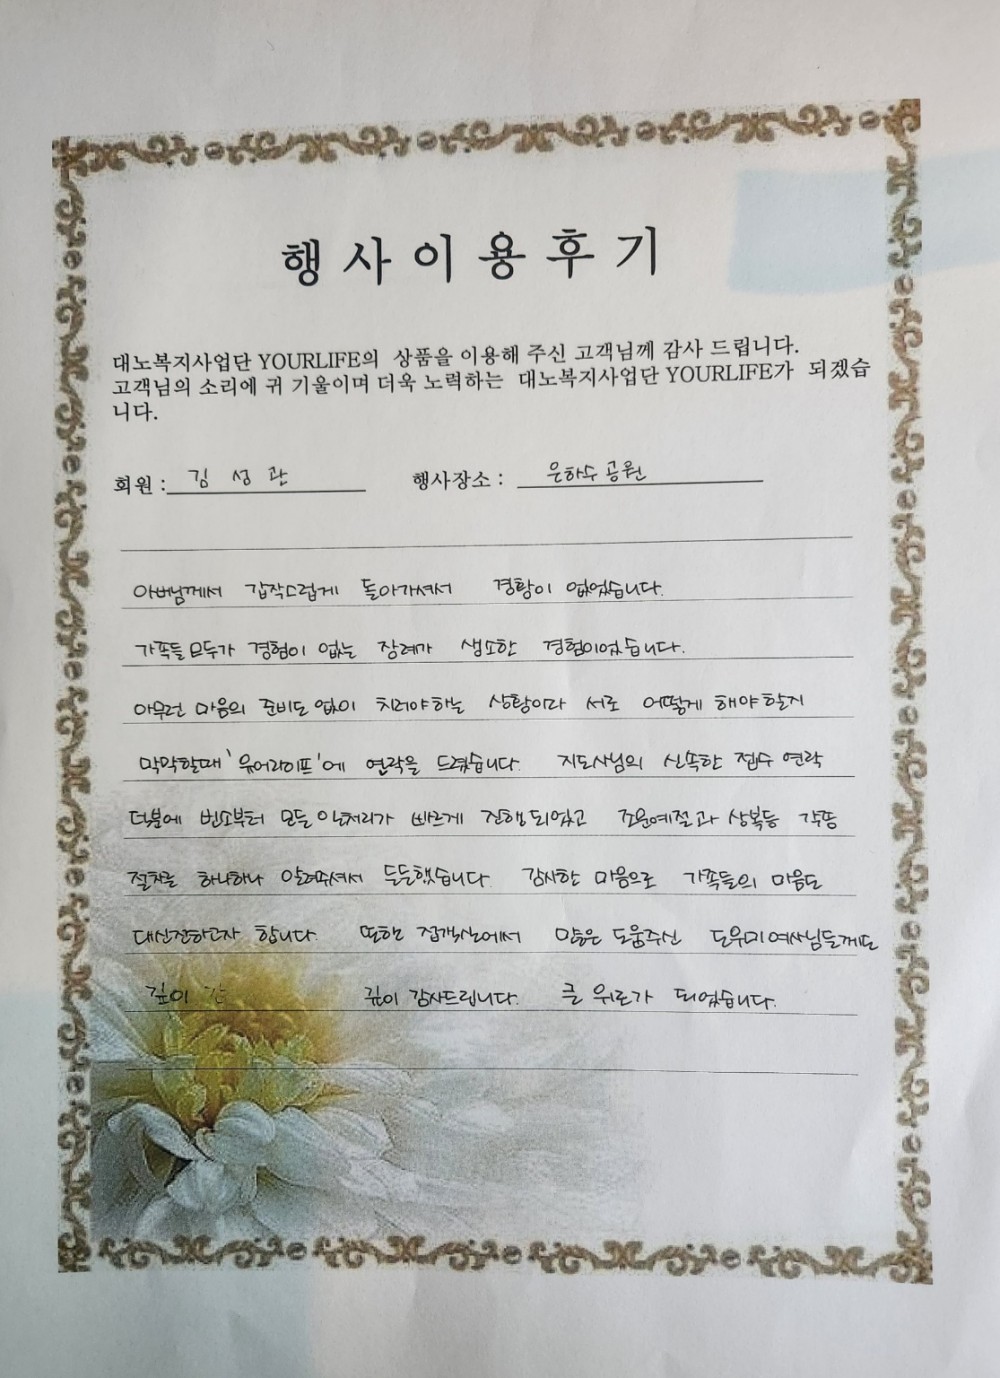 행사이용후기
대노복지사업단 YOURLIFE의 상품을 이용해 주신 고객님께 감사 드립니다.
고객님의 소리에 귀 기울이며 더욱 노력하는 대노복지사업단 YOURLIFE가 되겠습
니다.
회원 : 김성관 행사장소 : 은하수공원
아버님께서 갑작스럽게 돌아가셔서 경황이 없었습니다.
가족들 모두가 경험이 없는 장례가 생소한 경험이었습니다.
아무런 마음의 준비도 없이 치러야하는 상황이라 서로 어떻게 해야할지
막막할때 '유어라이프'에 연락을 드렸습니다. 지도사님의 신속한 접수 연락
덕분에 빈소부터 모든 일처리가 빠르게 진행되었고 조문예절과 상복등 각종
절차를 하나하나 알려주셔서 든든했습니다. 감사한 마음으로 가족들의 마음도
대신전하고자 합니다. 또한 접객실에서 많은 도움주신 도우미여사님들께도
깊이 감 깊이 감사드립니다. 큰 위로가 되었습니다.